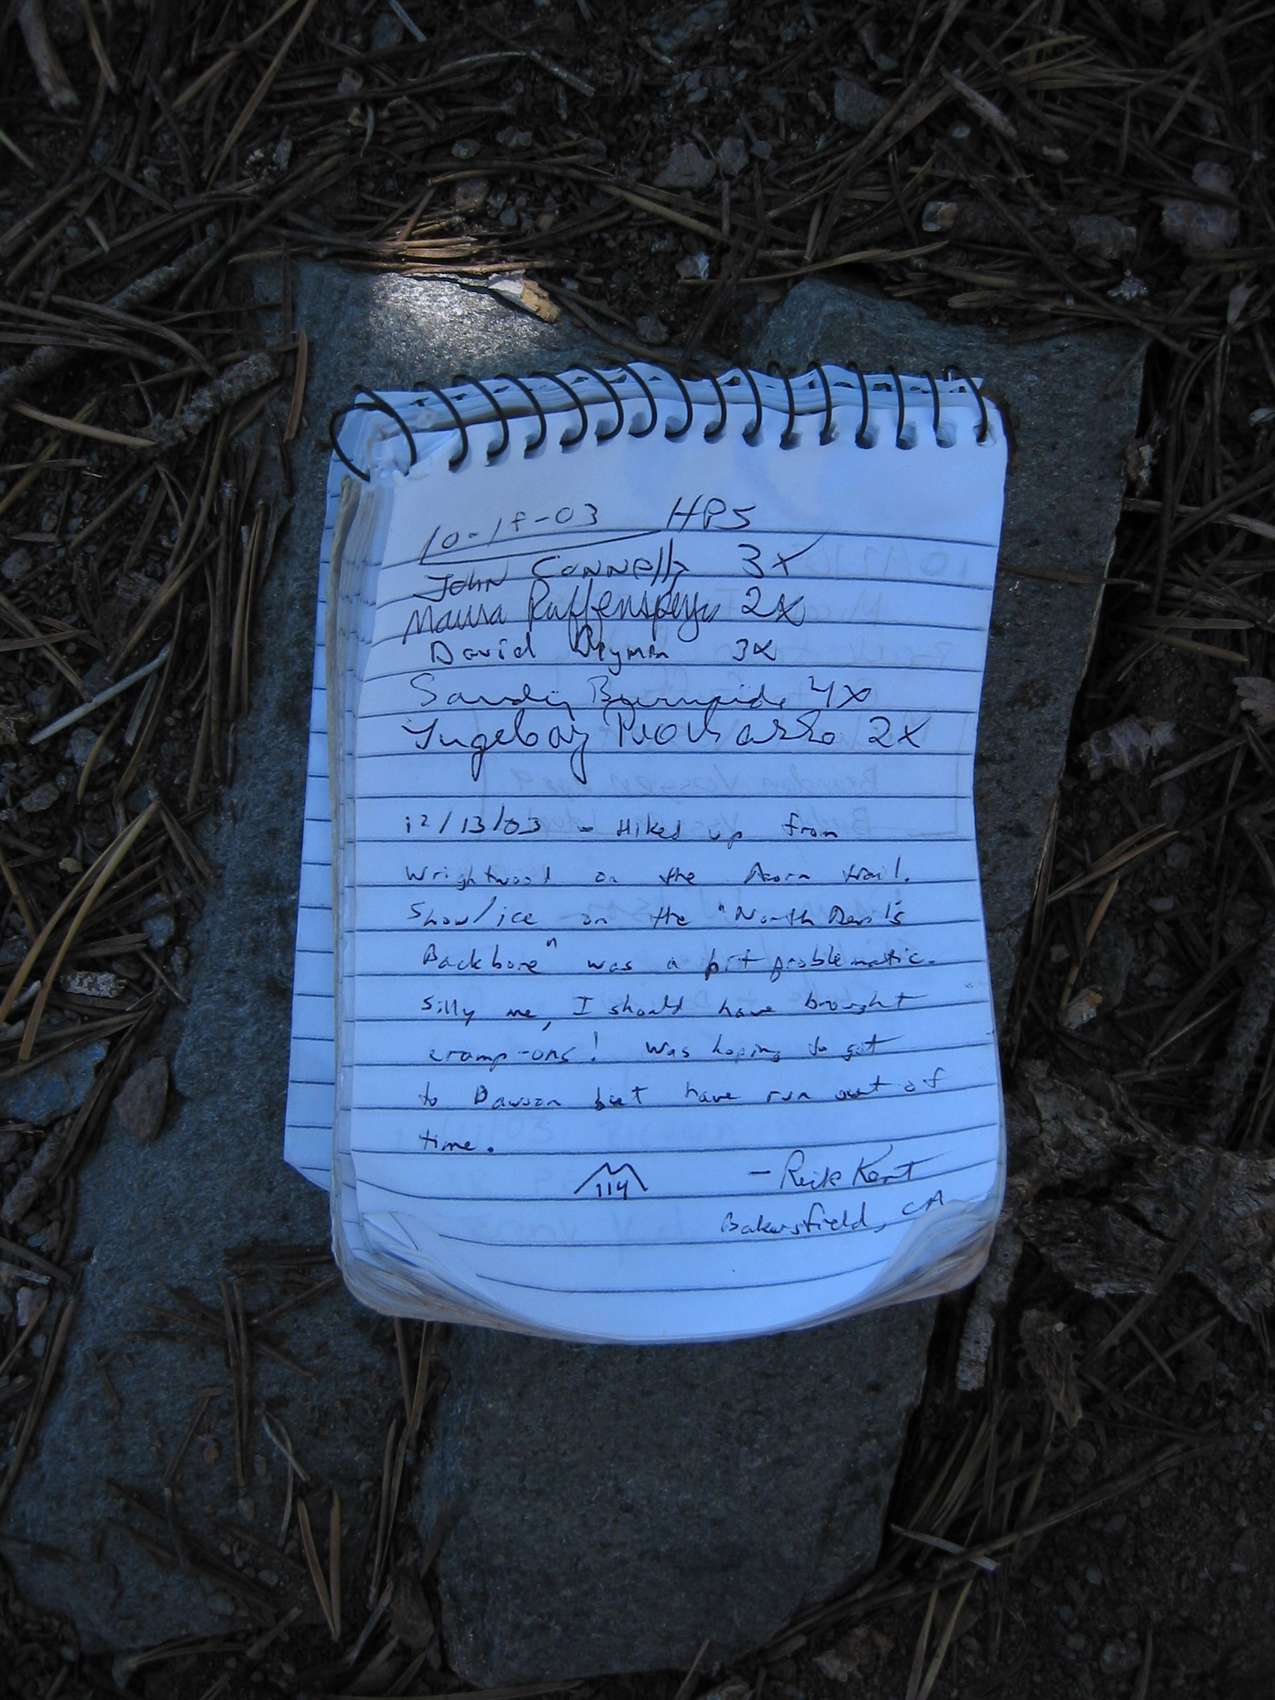 10-18-03 HPS
John Connelly 3x
Maura Raffensperger 2x
David 3x
Sandy Burnside 4x
Ingeborg Prochazka 2x
12/13/03 - Hiked up from
Wrightwood on the Acorn trail.
Snow/ice on the "North Devil's
Backbone" was a bit problematic.
Silly me, I should have brought
cramp-ons! Was hoping to get
to Dawson but have run out of
time.
114 - Rick Kent
Bakersfield, CA